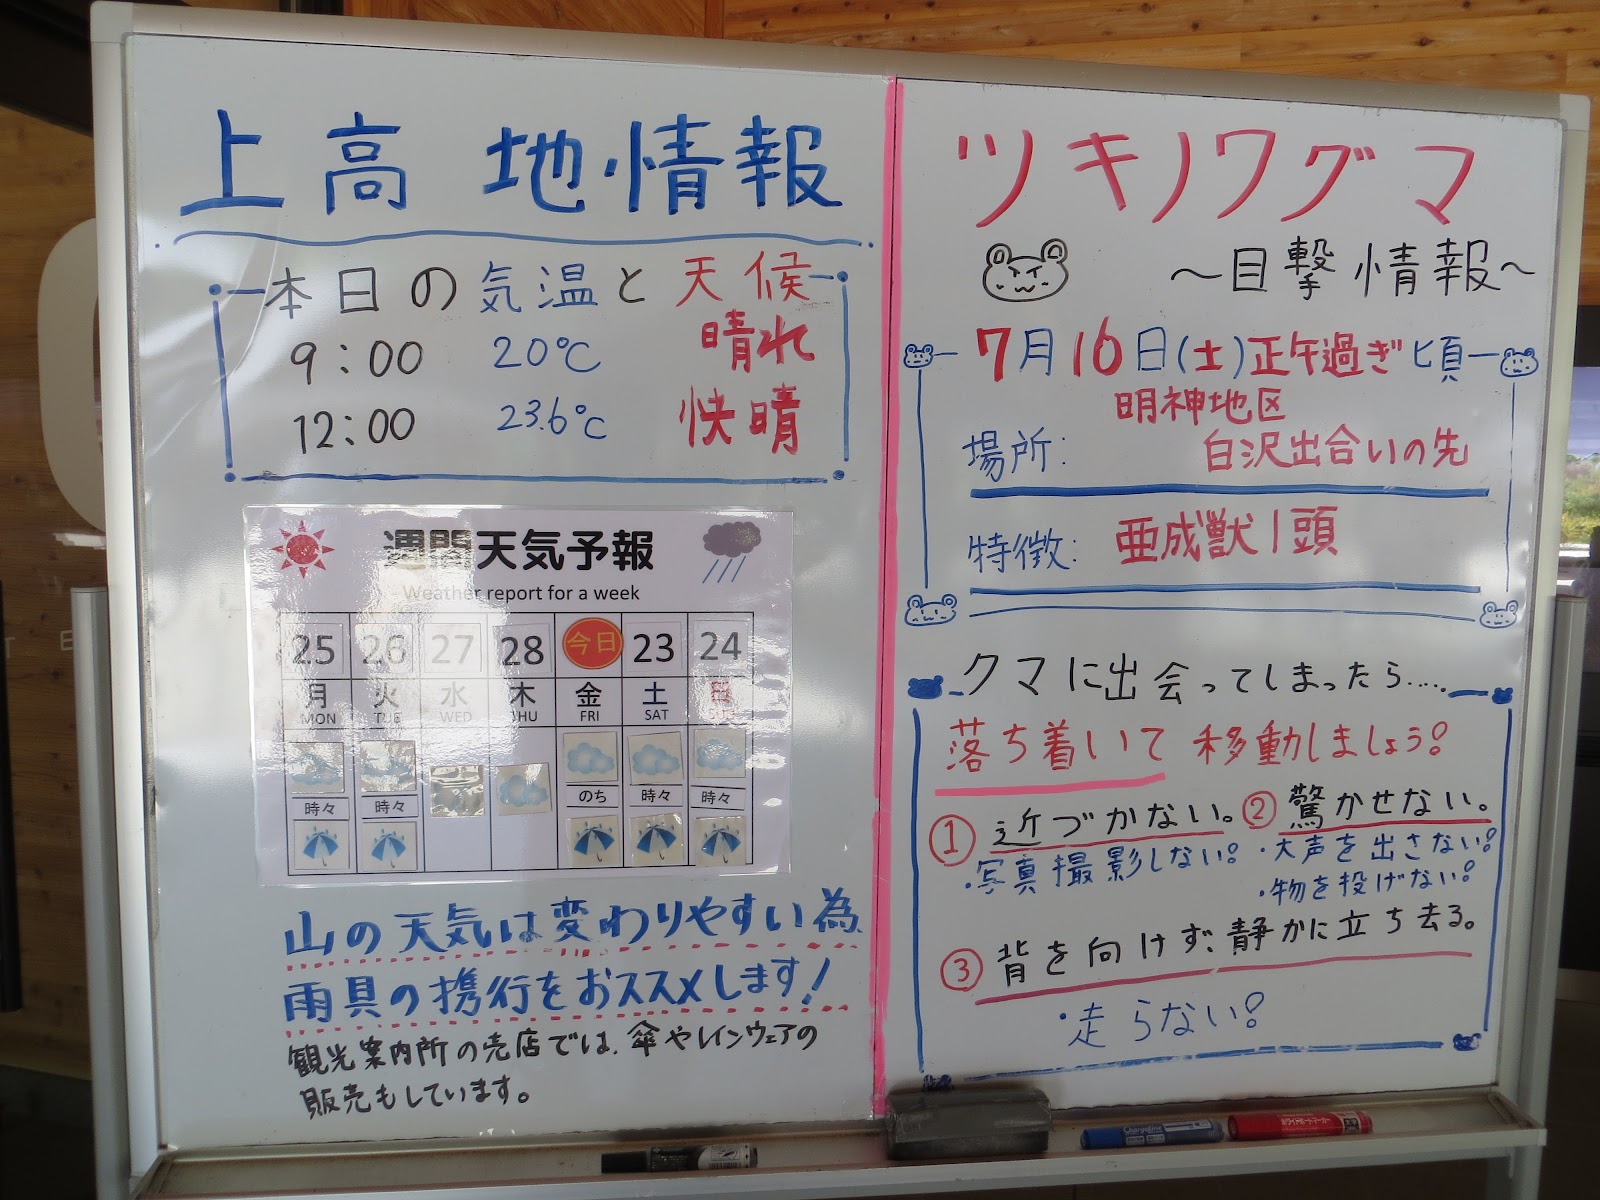 上高地情報
本日の気温と天候
9:00 20℃ 晴れ
12:00 23.6℃ 快晴
週間天気予報
Weather report for a week
25 26 27 28 今日 23 24
月 火 水 木 金 土 日
MON TUE WED THU FRI SAT
時々 時々 のち 時々 時々
山の天気は変わりやすい為、
雨具の携行をおススメします!
観光案内所の売店では、傘やレインウェアの
販売もしています。
ツキノワグマ
〜目撃情報〜
7月16日(土)正午過ぎ頃
明神地区
場所: 白沢出合いの先
特徴: 亜成獣1頭
クマに出会ってしまったら.....
落ち着いて移動しましょう!
① 近づかない。
・写真撮影しない!
② 驚かせない。
・大声を出さない!
・物を投げない!
③ 背を向けず、静かに立ち去る。
・走らない!